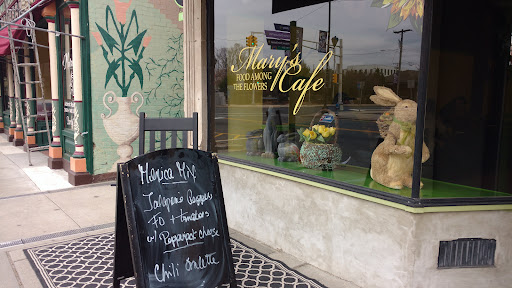 Mary's
FOOD AMONG
THE FLOWERS
Kafe
Monica
Jalapeno
+ tomatoes
w/ Pepperjack cheese
Chili Omlette